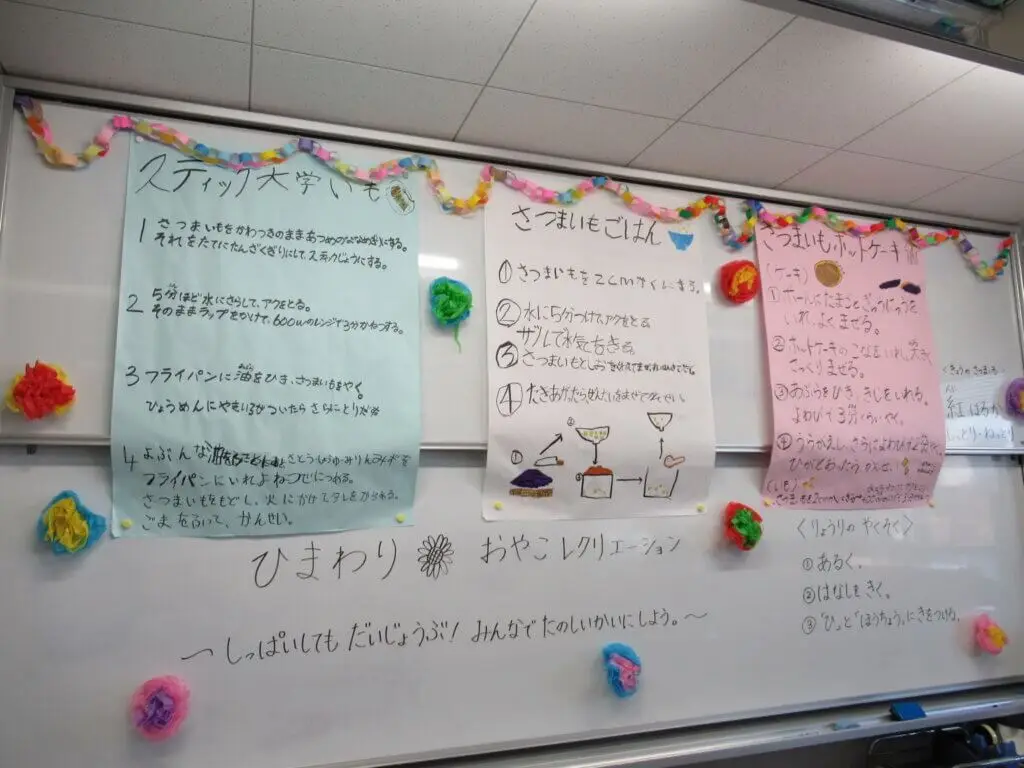 スティック大学いも
1 さつまいもをかわつきのままあつめのななめぎりにする。
それをたてにたんざくぎりにして、スティックじょうにする。
2 5分ほど水にさらして、アクをとる。
そのままラップをかけて、600wのレンジで3分かねつする。
3 フライパンに油をひき、さつまいもをやく
ひょうめんにやきいろがついたら さらにとりだす
4 よぶんな油を さとうしょうゆみりんみずを
フライパンにいれよわ
さつまいもをもどし、火にかけてタレをからめる。
ごまを ふって、かんせい。
さつまいもごはん
① さつまいもを2cm
② 水に5分つけて、アクをとる
ザルで水気をきる。
③ さつまいもとしおを
④ たきあがたら
① ②
さつまいもホットケーキ
(ケーキ)
① ボールにたまごとぎゅうにゅうを
いれ、よくまぜる。
② ホットケーキのこなをいれ、大きく
ざっくりまぜる。
③ あぶらをひき、きじをいれる。
よわびで3分くらいやく。
④ うらがえし、さらに
(いも)
紅はるか
しっとり〜ねっとり
ひまわり おやこレクリエーション
〜しっぱいしても だいじょうぶ! みんなで たのしいかいに しよう。〜
<りょうりの やくそく>
① あるく。
② はなしを きく。
③ "ひ"と"ほうちょう"にきをつける。